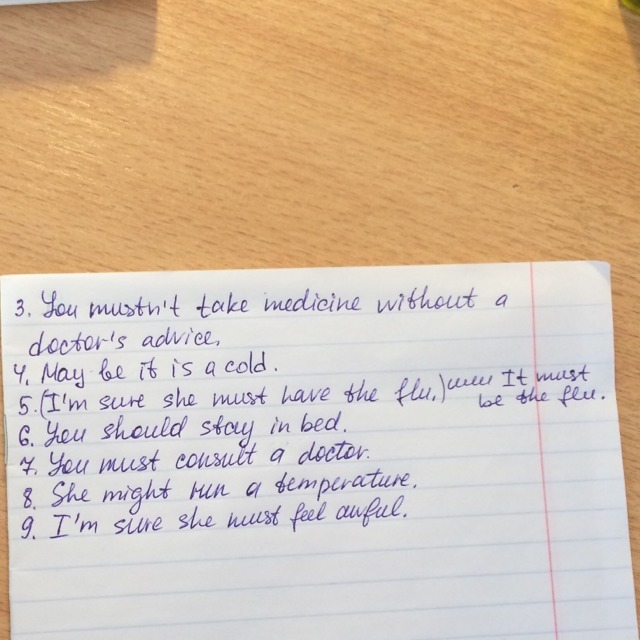 3. You mustn't take medicine without a
doctor's advice.
4. May be it is a cold.
5. (I'm sure she must have the flu.) или It must
be the flu.
6. You should stay in bed.
7. You must consult a doctor.
8. She might run a temperature.
9. I'm sure she must feel awful.